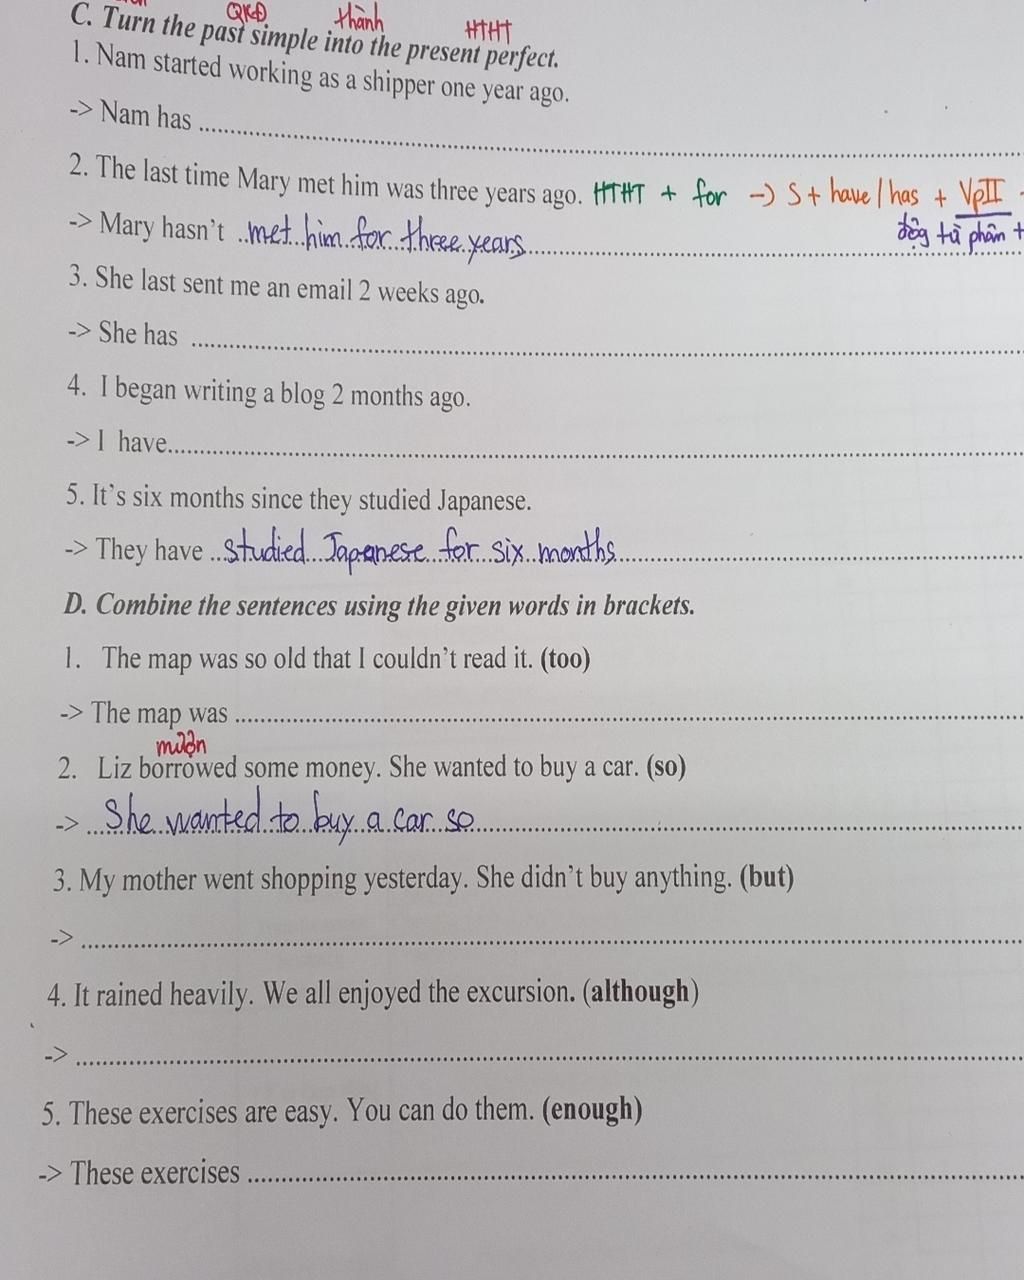 QKĐ thành HTHT
C. Turn the past simple into the present perfect.
1. Nam started working as a shipper one year ago.
-> Nam has ........................................
2. The last time Mary met him was three years ago. HTHT + for -> S + have / has + VpII
-> Mary hasn't met him for three years
động từ phân t
3. She last sent me an email 2 weeks ago.
-> She has ........................................
4. I began writing a blog 2 months ago.
-> I have........................................
5. It's six months since they studied Japanese.
-> They have studied Japanese for six months
D. Combine the sentences using the given words in brackets.
1. The map was so old that I couldn't read it. (too)
-> The map was ........................................
mượn
2. Liz borrowed some money. She wanted to buy a car. (so)
-> She wanted to buy a car so
3. My mother went shopping yesterday. She didn't buy anything. (but)
-> ........................................
4. It rained heavily. We all enjoyed the excursion. (although)
-> ........................................
5. These exercises are easy. You can do them. (enough)
-> These exercises ........................................